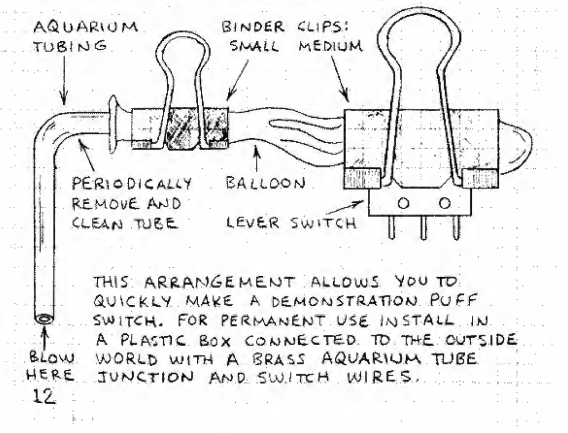 AQUARIUM
TUBING
BINDER CLIPS:
SMALL MEDIUM
PERIODICALLY
REMOVE AND
CLEAN TUBE
BALLOON
LEVER SWITCH
THIS ARRANGEMENT ALLOWS YOU TO
QUICKLY MAKE A DEMONSTRATION PUFF
SWITCH. FOR PERMANENT USE INSTALL IN
A PLASTIC BOX CONNECTED TO THE OUTSIDE
WORLD WITH A BRASS AQUARIUM TUBE
JUNCTION AND SWITCH WIRES.
BLOW
HERE
12